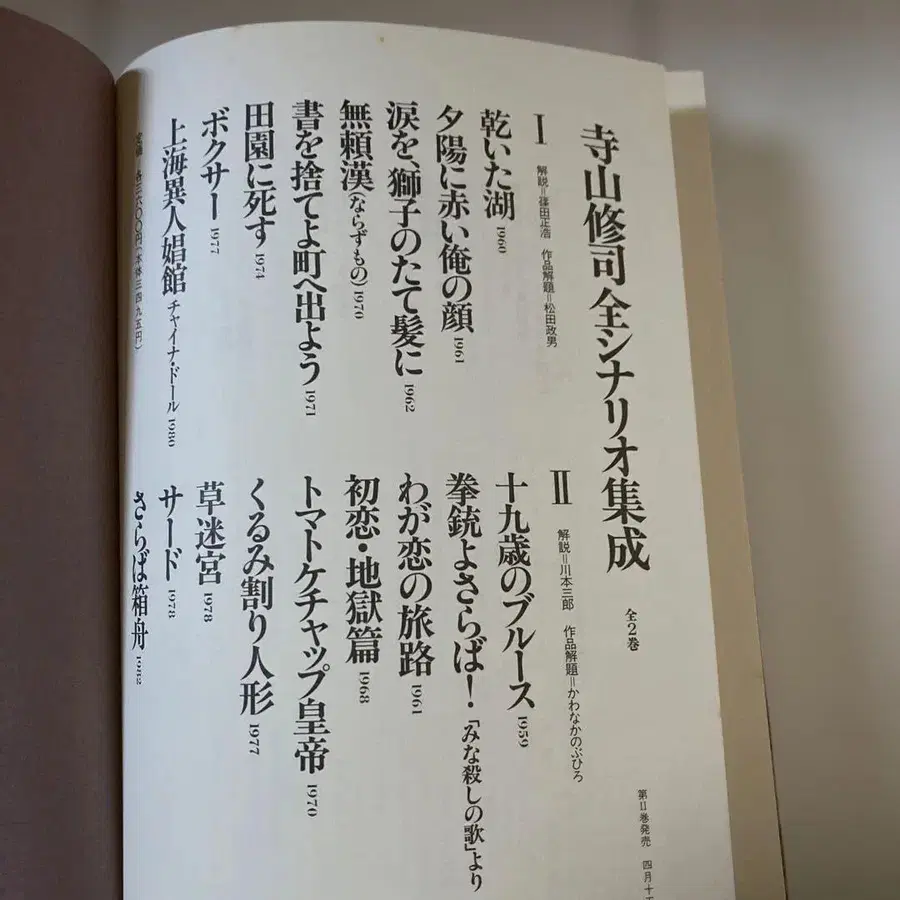 寺山修司全シナリオ集成 全2巻
I 解説=篠田正浩 作品解題=松田政男
乾いた湖 1960
夕陽に赤い俺の顔 1961
涙を、獅子のたて髪に 1962
無頼漢(ならずもの) 1970
書を捨てよ町へ出よう 1971
田園に死す 1974
ボクサー 1977
上海異人娼館 チャイナ・ドール 1980
定価 各三六〇〇円(本体三四九五円)
II 解説=川本三郎 作品解題=かわなかのぶひろ
十九歳のブルース 1959
拳銃よさらば!「みな殺しの歌」より
わが恋の旅路 1961
初恋・地獄篇 1968
トマトケチャップ皇帝 1970
くるみ割り人形 1977
草迷宮 1978
サード 1978
さらば箱舟 1982
第II巻発売 四月十